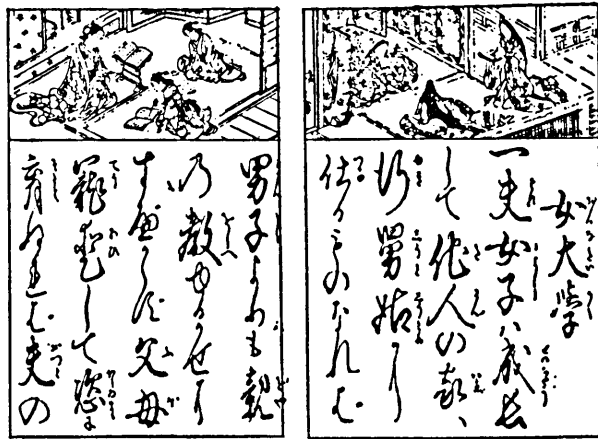 女大学
一夫女子ハ成長
して他人の家へ
行舅姑に
仕るものなれば
男子よりも親
の教ゆるかせに
すべからず父母
寵愛して恣に
育ぬれば夫の